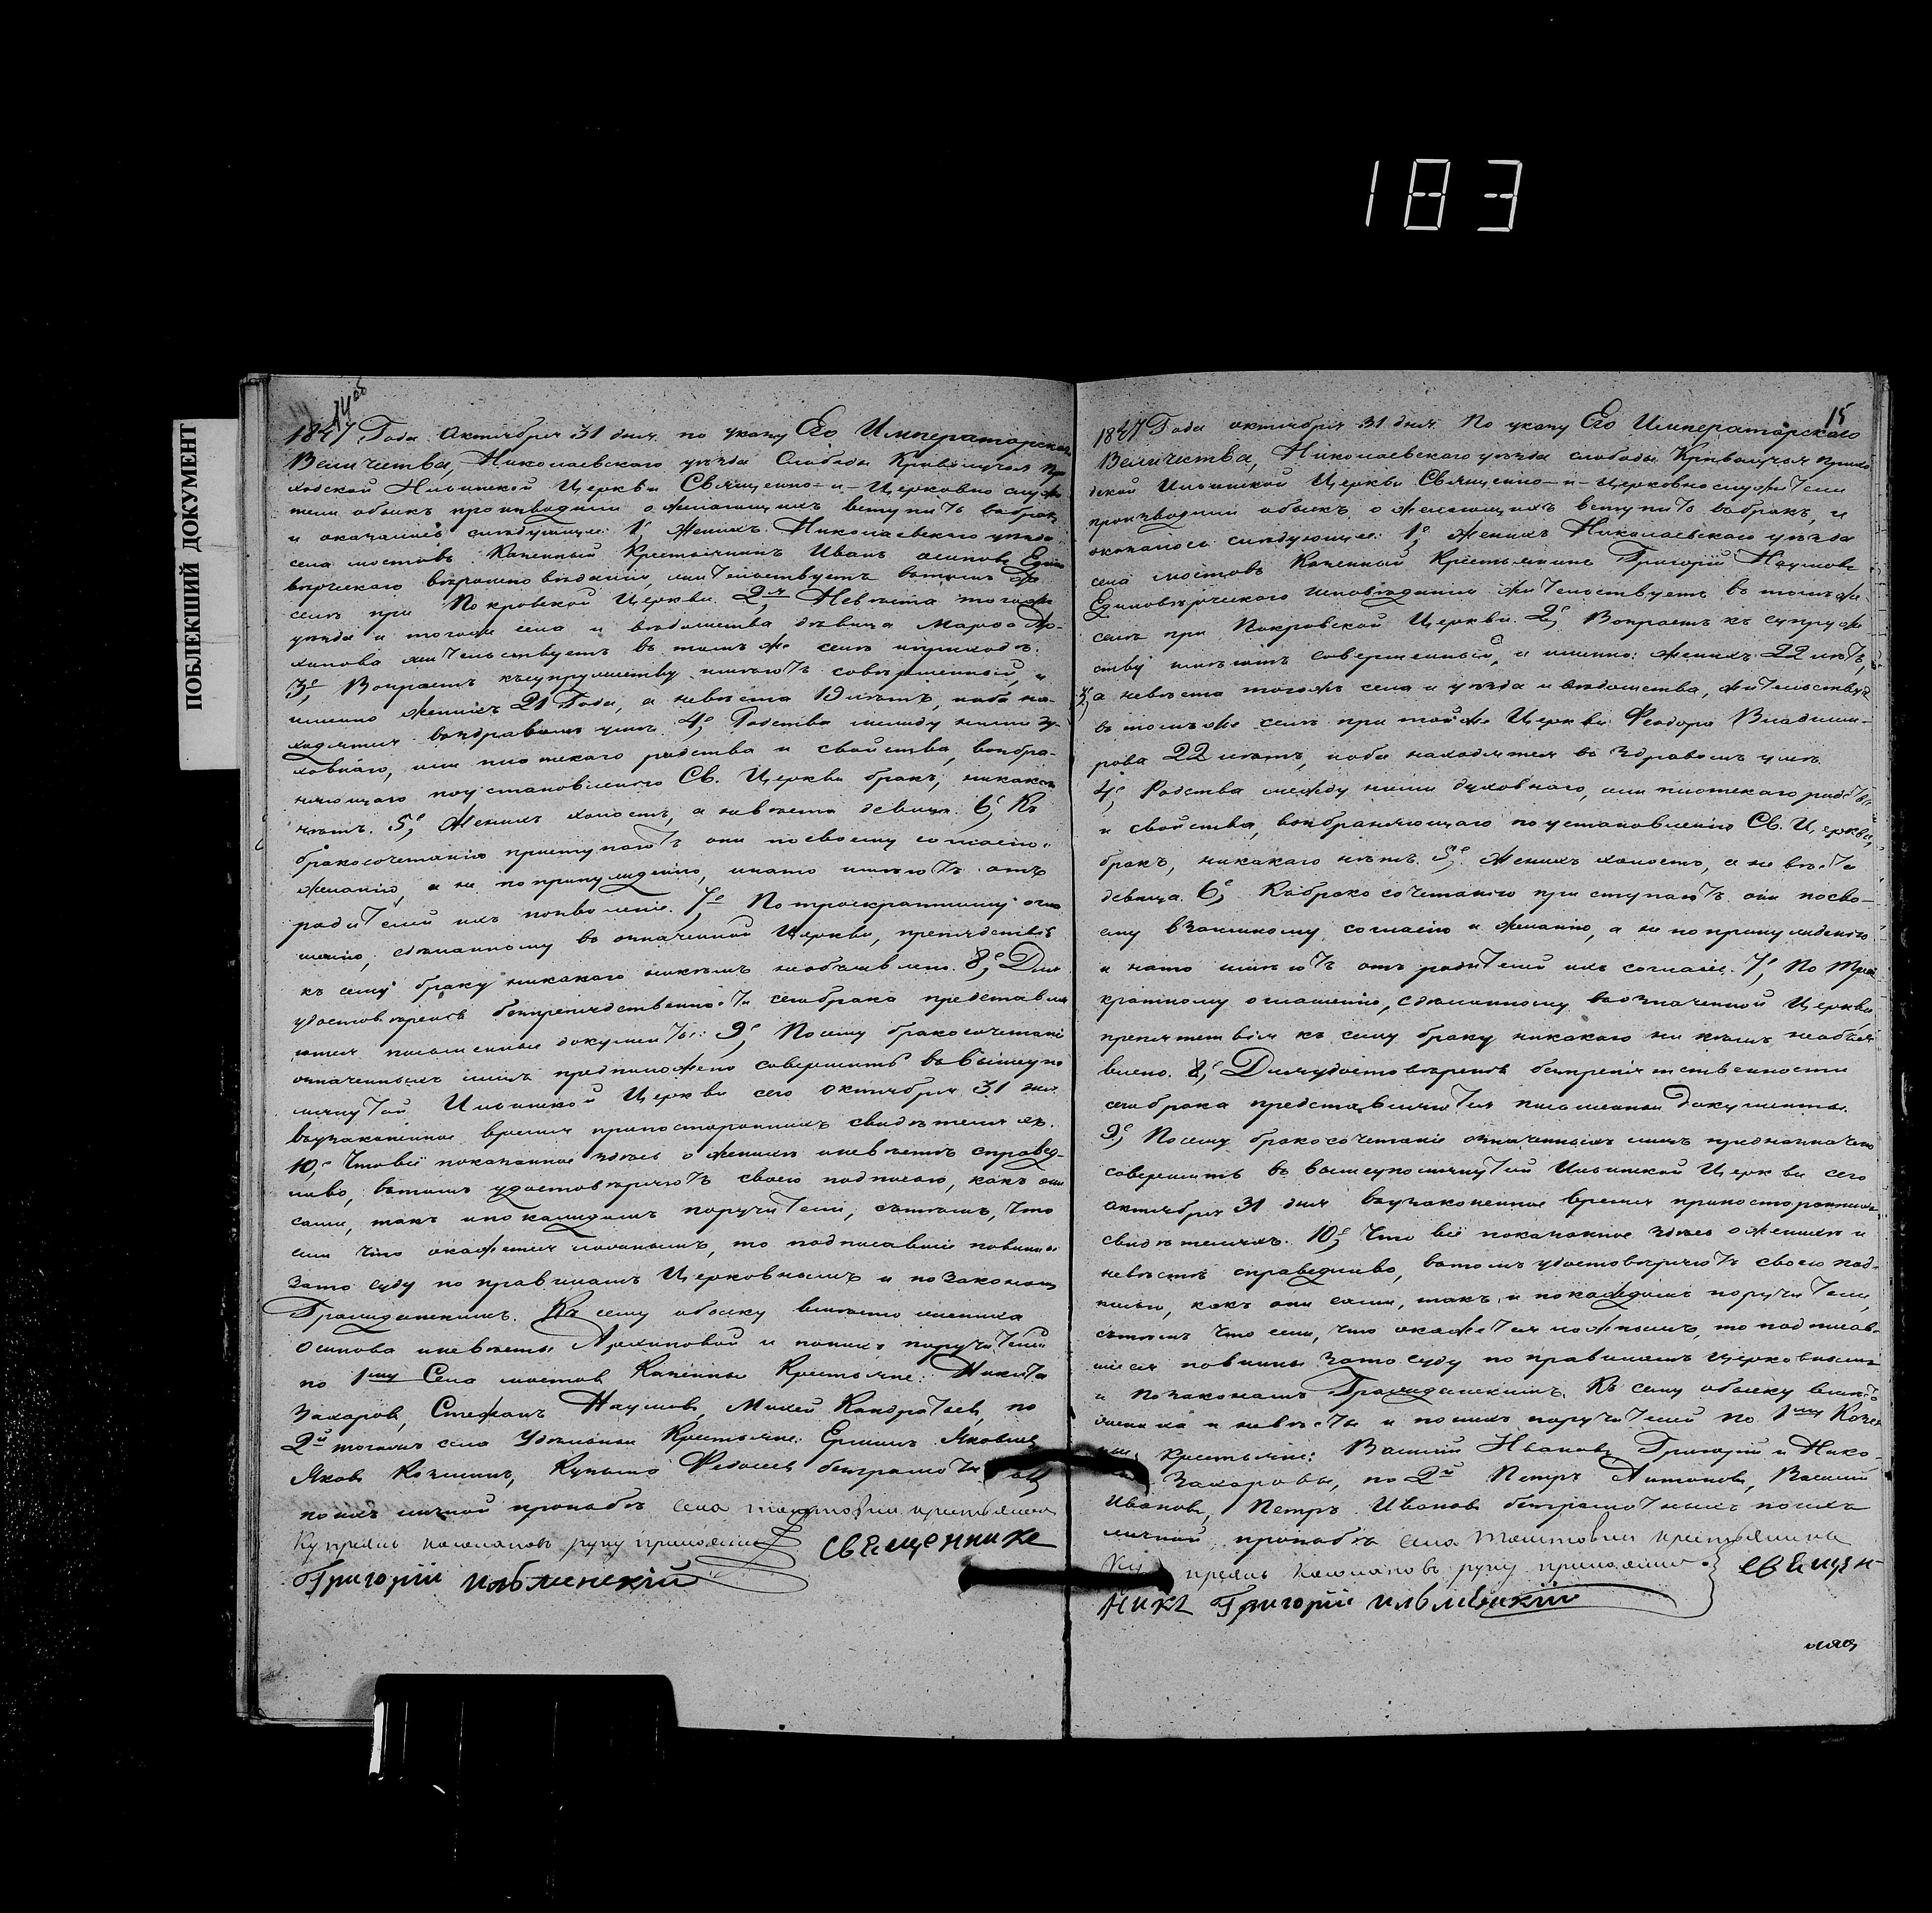 183
ПОБЛЕКШИЙ ДОКУМЕНТ
14об
1847 Года Октября 31 дня по указу Его Императорскаго
Величества, Николаевского уѣзда Слободы Криволучья при
ходской Ильинской Церкви Священно-и-Церковно служи
тели обыскъ производили о желающихъ вступить вбракъ
и оказалось слѣдующее: 1е, Женихъ Николаевскаго уѣзда
села мостовъ Казенный Крестьянинъ Иванъ осиповъ Едино
вѣрческаго вѣроисповѣданія, жительствуетъ вътомъ же
селѣ при Покровской Церкви. 2я, Невѣста тогоже
уѣзда и тогоже села и вѣдомства дѣвица Марфа Ар-
хипова жительствуетъ въ томъ же селѣ иприходѣ.
3е, Возрастъ къ супружеству имѣютъ совершенный, и
именно женихъ 21 Года, а невѣста 19 лѣтъ, иоба на-
ходятся въздравомъ умѣ. 4е, Родства между ними ду-
ховнаго, или плотскаго родства и свойства, возбра-
няющаго поустановленію Св. Церкви бракъ, никакого
нѣтъ. 5е, Женихъ холостъ, а невѣста девица. 6е, Къ
бракосочетанію приступаютъ они посвоему согласію и
желанію, а не попринужденію, инато имѣютъ отъ
родителей ихъ позволеніе. 7е, Потроекратному огла
шенію, сдѣланному въ означенной Церкви, препятствія
къ сему браку никакого никѣмъ необъявлено. 8е, Для
удостовѣренія безпрепятственности сегобрака представля
ются письменные документы: 9е, Посему бракосочетаніе
означенныхъ лицъ предположено совершить въвышеупо
мянутой Ильинской Церкви сего Октября 31 дня
вузаконенное время припостороннихъ свидѣтеляхъ.
10,е Что всё показанное здѣсь о женихѣ иневѣстѣ справед-
ливо, вътомъ удостовѣряютъ своею подписью, какъ они
сами, такъ ипокаждомъ поручители, сътѣмъ, что
если что окажется ложнымъ, то подписавшіе повинны
зато суду по правиламъ Церковнымъ и позаконамъ
Гражданскимъ. Къ сему обыску вмѣсто жениха
Осипова иневѣсты Архиповой и поникъ поручителей
по 1му Села мостовъ Казенные Крестьяне: Никита
Захаровъ, Стефанъ Наумовъ, Михей Кандратьев, по
2й тогожъ села Удѣльныя Крестьяне: Ермилъ Яковлевъ
Яковъ Козминъ, Кузьма Федосеев безграмотныхъ
поихъ личной прозьбѣ села крестьянинъ
Купреянъ руку приложилъ Священникъ
Григорій Ильменскій
15
1847 Года октября 31 дня По указу Его Императорскаго
Величества, Николаевского уѣзда слободы Криволучья прихо
дской Ильинской Церкви Священно-и-Церковнослужители
производили обыскъ о желающихъ вступить вбракъ, и
оказалось слѣдующее: 1е, Женихъ Николаевскаго уѣзда
села мостовъ Казенный Крестьянинъ Григорій Наумовъ
Единовѣрческаго исповѣданія жительствуетъ в томъ же
селѣ при Покровской Церкви. 2е, Возрастъ къ супруже
ству имѣютъ совершенный, а именно: женихъ 22 лѣтъ,
а невѣста тогожъ села и уѣзда и вѣдомства, жительствуя
въ томъ же селѣ при той же Церкви Феодора Владими-
рова 22 лѣтъ, иоба находятся въ здравомъ умѣ.
4е, Родства между ними духовнаго, или плотскаго родства
и свойства, возбраняющаго поустановленію Св. Церкви,
бракъ, никакого нѣтъ. 5е, Женихъ холостъ, а невѣста
девица. 6е, Къбракосочетанію приступаютъ они посво-
ему взаимному согласію и желанію, а не попринужденію
и нато имѣютъ отъ родителей ихъ согласіе. 7е, По трое
кратному оглашенію, сдѣланному въозначенной Церкви
препятствія къ сему браку никакого ни кѣмъ необъяв
влено. 8,е Дляудостовѣренія безпрепятственности
сегобрака представляются письменныя документы.
9е, Посему бракосочетаніе означенныхъ лицъ предназначено
совершить въ вышеупомянутой Ильинской Церкви сего
октября 31 дня вузаконенное время припостороннихъ
свидѣтеляхъ. 10е, Что всё показанное здѣсь оженихѣ и
невѣстѣ справедливо, вътомъ удостовѣряютъ своею под-
писью, какъ они сами, такъ и покаждомъ поручители,
сътѣмъ что если, что окажется ложнымъ, то подписав-
шіеся повинны зато суду по правиламъ Церковнымъ
и позаконамъ Гражданскимъ. Къ сему обыску вмѣсто
жениха и невѣсты и поникъ поручителей по 1му Казен
ные крестьяне: Василій Ивановъ Григорій и Нико-
Захаровы, по 2й Петръ Антоновъ, Василій
Ивановъ, Петръ Ивановъ безграмотныхъ поихъ
личной прозьбѣ села крестьянинъ
Купреянъ руку приложилъ. Священ-
никъ Григорій Ильменскій